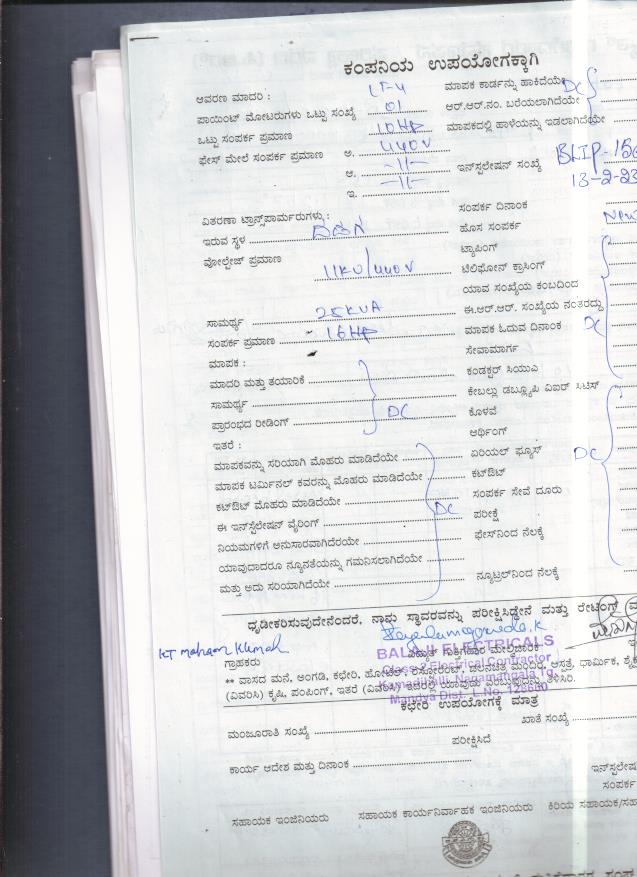 ಕಂಪನಿಯ ಉಪಯೋಗಕ್ಕಾಗಿ
ಆವರಣ ಮಾದರಿ : LT-4 ಮಾಪಕ ಕಾರ್ಡನ್ನು ಹಾಕಿದೆಯೇ DC
ಪಾಯಿಂಟ್ ಮೋಟರುಗಳು ಒಟ್ಟು ಸಂಖ್ಯೆ 01 ಆರ್.ಆರ್.ನಂ. ಬರೆಯಲಾಗಿದೆಯೇ
ಒಟ್ಟು ಸಂಪರ್ಕ ಪ್ರಮಾಣ 10HP ಮಾಪಕದಲ್ಲಿ ಹಾಳೆಯನ್ನು ಇಡಲಾಗಿದೆಯೇ
ಫೇಸ್ ಮೇಲೆ ಸಂಪರ್ಕ ಪ್ರಮಾಣ ಅ. 440V
ಆ. -11- ಇನ್ಸ್ಟಲೇಷನ್ ಸಂಖ್ಯೆ BLIP-15
ಇ. -11- 13-2-23
ವಿತರಣಾ ಟ್ರಾನ್ಸ್‌ಪಾರ್ಮರುಗಳು : ಸಂಪರ್ಕ ದಿನಾಂಕ
ಇರುವ ಸ್ಥಳ ಹೊಸ ಸಂಪರ್ಕ New
ವೋಲ್ಟೇಜ್ ಪ್ರಮಾಣ ಟ್ಯಾಪಿಂಗ್
11KV/440V ಟೆಲಿಫೋನ್ ಕ್ರಾಸಿಂಗ್
ಯಾವ ಸಂಖ್ಯೆಯ ಕಂಬದಿಂದ
ಸಾಮರ್ಥ್ಯ 25KVA ಈ.ಆರ್.ಆರ್. ಸಂಖ್ಯೆಯ ನಂತರದ್ದು
ಸಂಪರ್ಕ ಪ್ರಮಾಣ 16HP ಮಾಪಕ ಓದುವ ದಿನಾಂಕ DC
ಮಾಪಕ : ಸೇವಾಮಾರ್ಗ
ಮಾದರಿ ಮತ್ತು ತಯಾರಿಕೆ ಕಂಡಕ್ಟರ್ ಸಿಯುಎ
ಸಾಮರ್ಥ್ಯ ಕೇಬಲ್ಲು ಡಬ್ಲ್ಯೂಪಿ ವಿಐರ್
ಪ್ರಾರಂಭದ ರೀಡಿಂಗ್ DC ಕೊಳವೆ
ಇತರೆ : ಆರ್ಥಿಂಗ್
ಮಾಪಕವನ್ನು ಸರಿಯಾಗಿ ಮೊಹರು ಮಾಡಿದೆಯೇ ಏರಿಯಲ್ ಫ್ಯೂಸ್ DC
ಮಾಪಕ ಟರ್ಮಿನಲ್ ಕವರನ್ನು ಮೊಹರು ಮಾಡಿದೆಯೇ ಕಟ್‌ಔಟ್
ಕಟ್‌ಔಟ್ ಮೊಹರು ಮಾಡಿದೆಯೇ DC ಸಂಪರ್ಕ ಸೇವೆ ದೂರು
ಈ ಇನ್‌ಸ್ಪೆಲೇಷನ್ ವೈರಿಂಗ್ ಪರೀಕ್ಷೆ
ನಿಯಮಗಳಿಗೆ ಅನುಸಾರವಾಗಿದೆರಯೇ ಫೇಸ್‌ನಿಂದ ನೆಲಕ್ಕೆ
ಯಾವುದಾದರೂ ನ್ಯೂನತೆಯನ್ನು ಗಮನಿಸಲಾಗಿದೆಯೇ
ಮತ್ತು ಅದು ಸರಿಯಾಗಿದೆಯೇ ನ್ಯೂಟ್ರಲ್‌ನಿಂದ ನೆಲಕ್ಕೆ
ಧೃಡೀಕರಿಸುವುದೇನೆಂದರೆ, ನಾವು ಸ್ಥಾವರವನ್ನು ಪರೀಕ್ಷಿಸಿದ್ದೇನೆ ಮತ್ತು ರೇಟಿಂಗ್
KT mohan Kumar
ಗ್ರಾಹಕರು ವಿದ್ಯುತ್ ಗುತ್ತಿಗೆದಾರ ಮೇಲ್ವಿಚಾರಕ
BALAJI ELECTRICALS
Class-2 Electrical Contractor
Nagamangala Tq
Mandya Dist. L.No. 128680
** ವಾಸದ ಮನೆ, ಅಂಗಡಿ, ಕಛೇರಿ, ಹೋಟೆಲ್, ರೆಸ್ಟೋರೆಂಟ್, ಚಲನಚಿತ್ರ ಮಂದಿರ, ಆಸ್ಪತ್ರೆ, ಧಾರ್ಮಿಕ,
(ವಿವರಿಸಿ) ಕೃಷಿ, ಪಂಪಿಂಗ್, ಇತರೆ (ವಿವರಿಸಿ) ಇದರಲ್ಲಿ ಯಾವುದು ಎಂಬುವುದನ್ನು ತಿಳಿಸಿರಿ.
ಕಛೇರಿ ಉಪಯೋಗಕ್ಕೆ ಮಾತ್ರ
ಮಂಜೂರಾತಿ ಸಂಖ್ಯೆ ಖಾತೆ ಸಂಖ್ಯೆ
ಪರೀಕ್ಷಿಸಿದೆ
ಕಾರ್ಯ ಆದೇಶ ಮತ್ತು ದಿನಾಂಕ
ಇನ್‌ಸ್ಟಲೇಷ
ಸಂಪರ್ಕ
ಸಹಾಯಕ ಇಂಜಿನಿಯರು ಸಹಾಯಕ ಕಾರ್ಯನಿರ್ವಾಹಕ ಇಂಜಿನಿಯರು ಕಿರಿಯ ಸಹಾಯಕ/ಸಹಾ